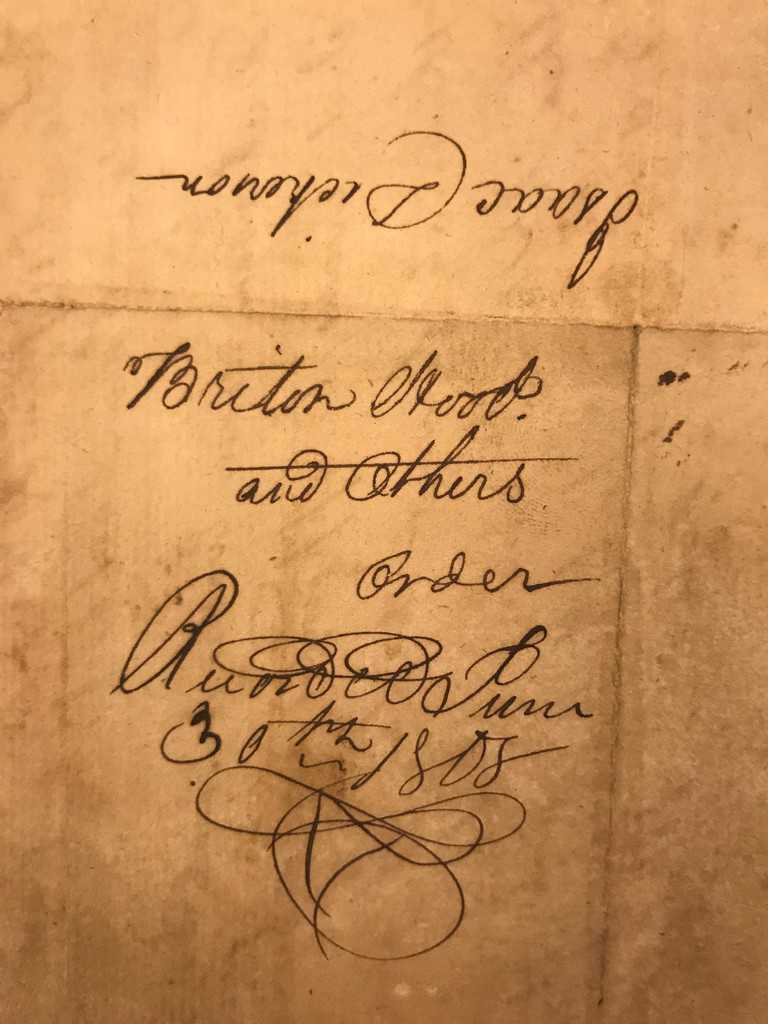 Isaac Dickerson
Briton Hood
and Others
Order
Recorded June
30th 1808